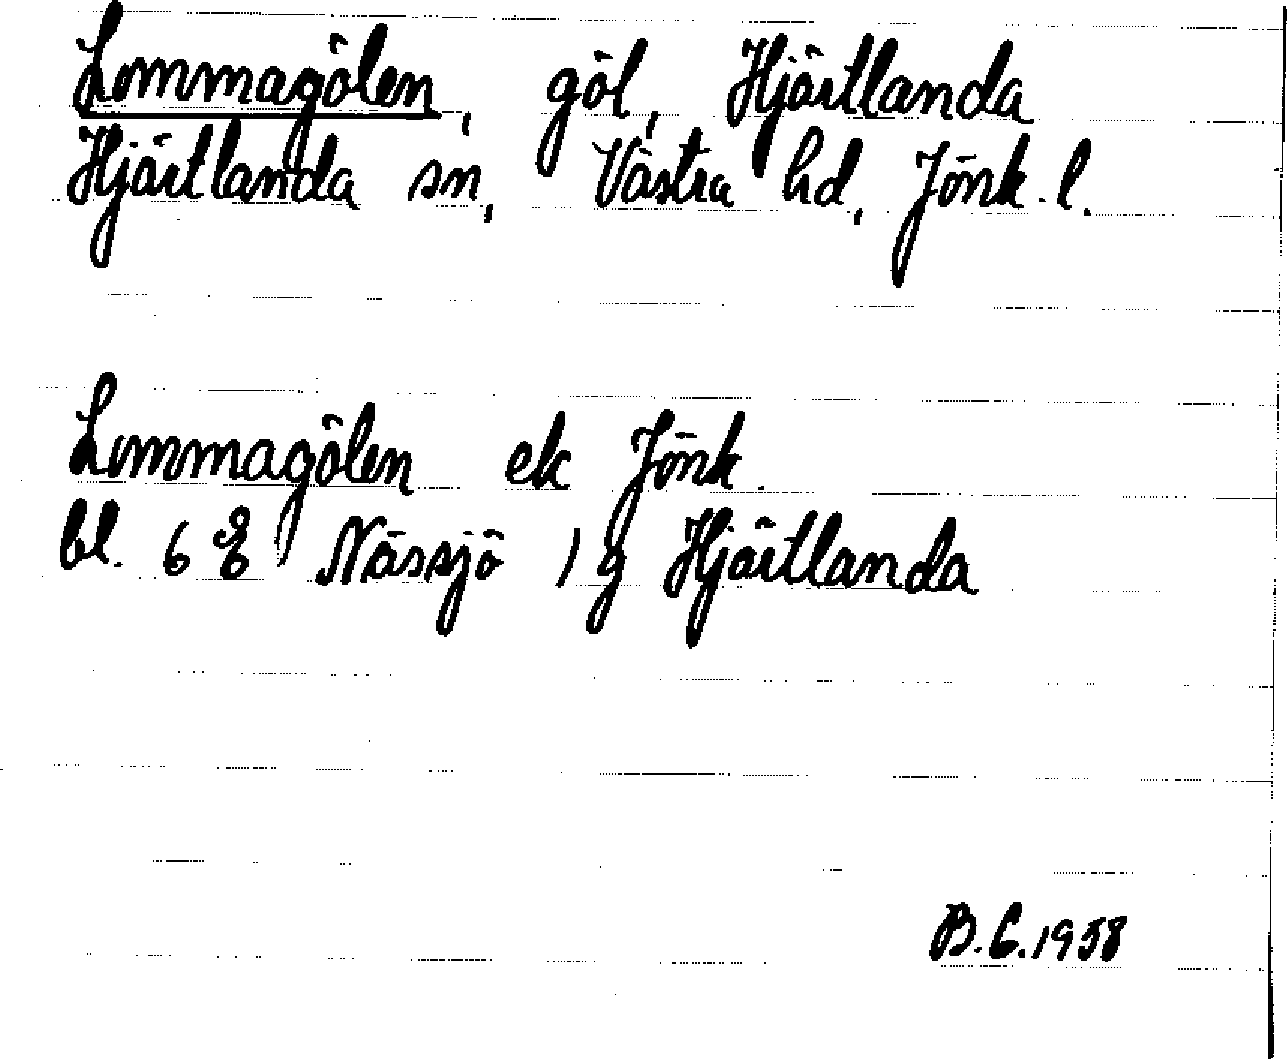 Lommagölen, göl, Hjärtlanda
Hjärtlanda sn, Västra hd, Jönk. l.
Lommagölen ek Jönk.
bl. 6 E Nässjö 1 g Hjärtlanda
B.E. 1958